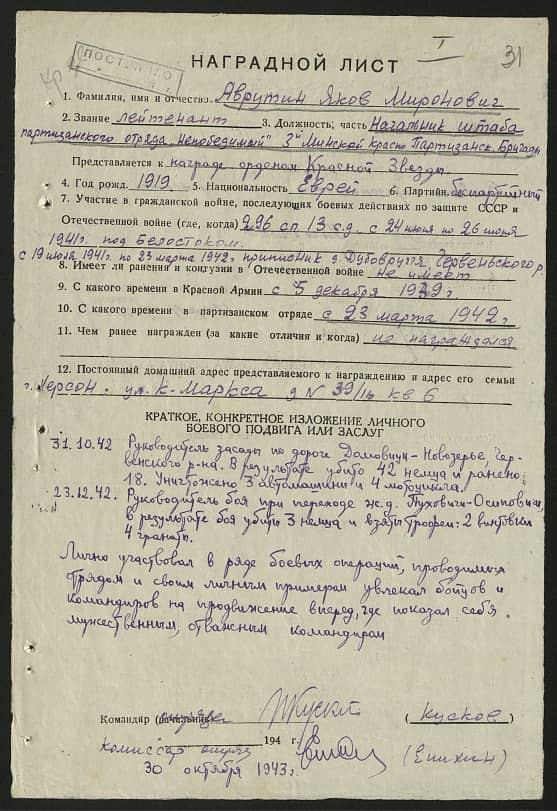 I
31
ПОСТУПИЛО
НАГРАДНОЙ ЛИСТ
1. Фамилия, имя и отчество Аврутин Яков Миронович
2. Звание лейтенант 3. Должность, часть Начальник штаба
партизанского отряда „Непобедимый" 3й Минской Красно Партизанск. Бригады
Представляется к награде орденом Красной Звезды
4. Год рожд. 1919 5. Национальность Еврей 6. Партийн. беспартейный
7. Участие в гражданской войне, последующих боевых действиях по защите СССР и
Отечественной войне (где, когда) 296 сп 13 с.д. с 24 июня по 26 июня
1941 г. под Белостоком.
с 19 июля 1941 г. по 23 марта 1942 г. приписник д. Дубовручча Червеньского р.
8. Имеет ли ранения и контузии в Отечественной войне не имеет
9. С какого времени в Красной Армии с 5 декабря 1939 г.
10. С какого времени в партизанском отряде с 23 марта 1942 г.
11. Чем ранее награжден (за какие отличия и когда) не награждался
12. Постоянный домашний адрес представляемого к награждению и адрес его семьи
г. Херсон. ул. К-Маркса д N 39/16 кв 6
КРАТКОЕ, КОНКРЕТНОЕ ИЗЛОЖЕНИЕ ЛИЧНОГО
БОЕВОГО ПОДВИГА ИЛИ ЗАСЛУГ
31.10.42 Руководитель засады по дороге Домовицк-Новозерье, Чер-
венского р-на. В результате убито 42 немца и ранено
18. Уничтожено 3 автомашины и 4 мотоцикла.
23.12.42. Руководитель боя при переходе ж.д. Пуховичи-Осиповичи,
в результате боя убиты 3 немца и взяты трофеи: 2 винтовки
4 гранаты.
Лично участвовал в ряде боевых операций, проводимых
отрядом и своим личным примерам увлекал бойцов и
командиров на продвижение вперед, где показал себя
мужественным, отважным командирам
Командир (начальник) отряда (Кусков)
194 г.
комиссар отряда (Епихин)
30 октября 1943 г.